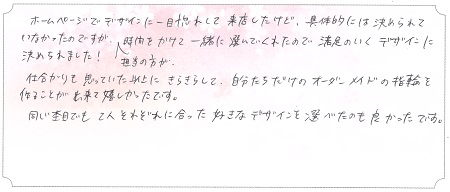 ホームページでデザインに一目惚れして来店したけど、具体的には決められて
いなかったのですが、時間をかけて一緒に選んでくれたので満足のいくデザインに
決められました！
担当の方が、
仕合がりも思っていた以上にきらきらして、自分たちだけのオーダーメイドの指輪を
作ることが出来て嬉しかったです。
同じ杢目でも2人それぞれに合った好きなデザインを選べたのも良かったです。